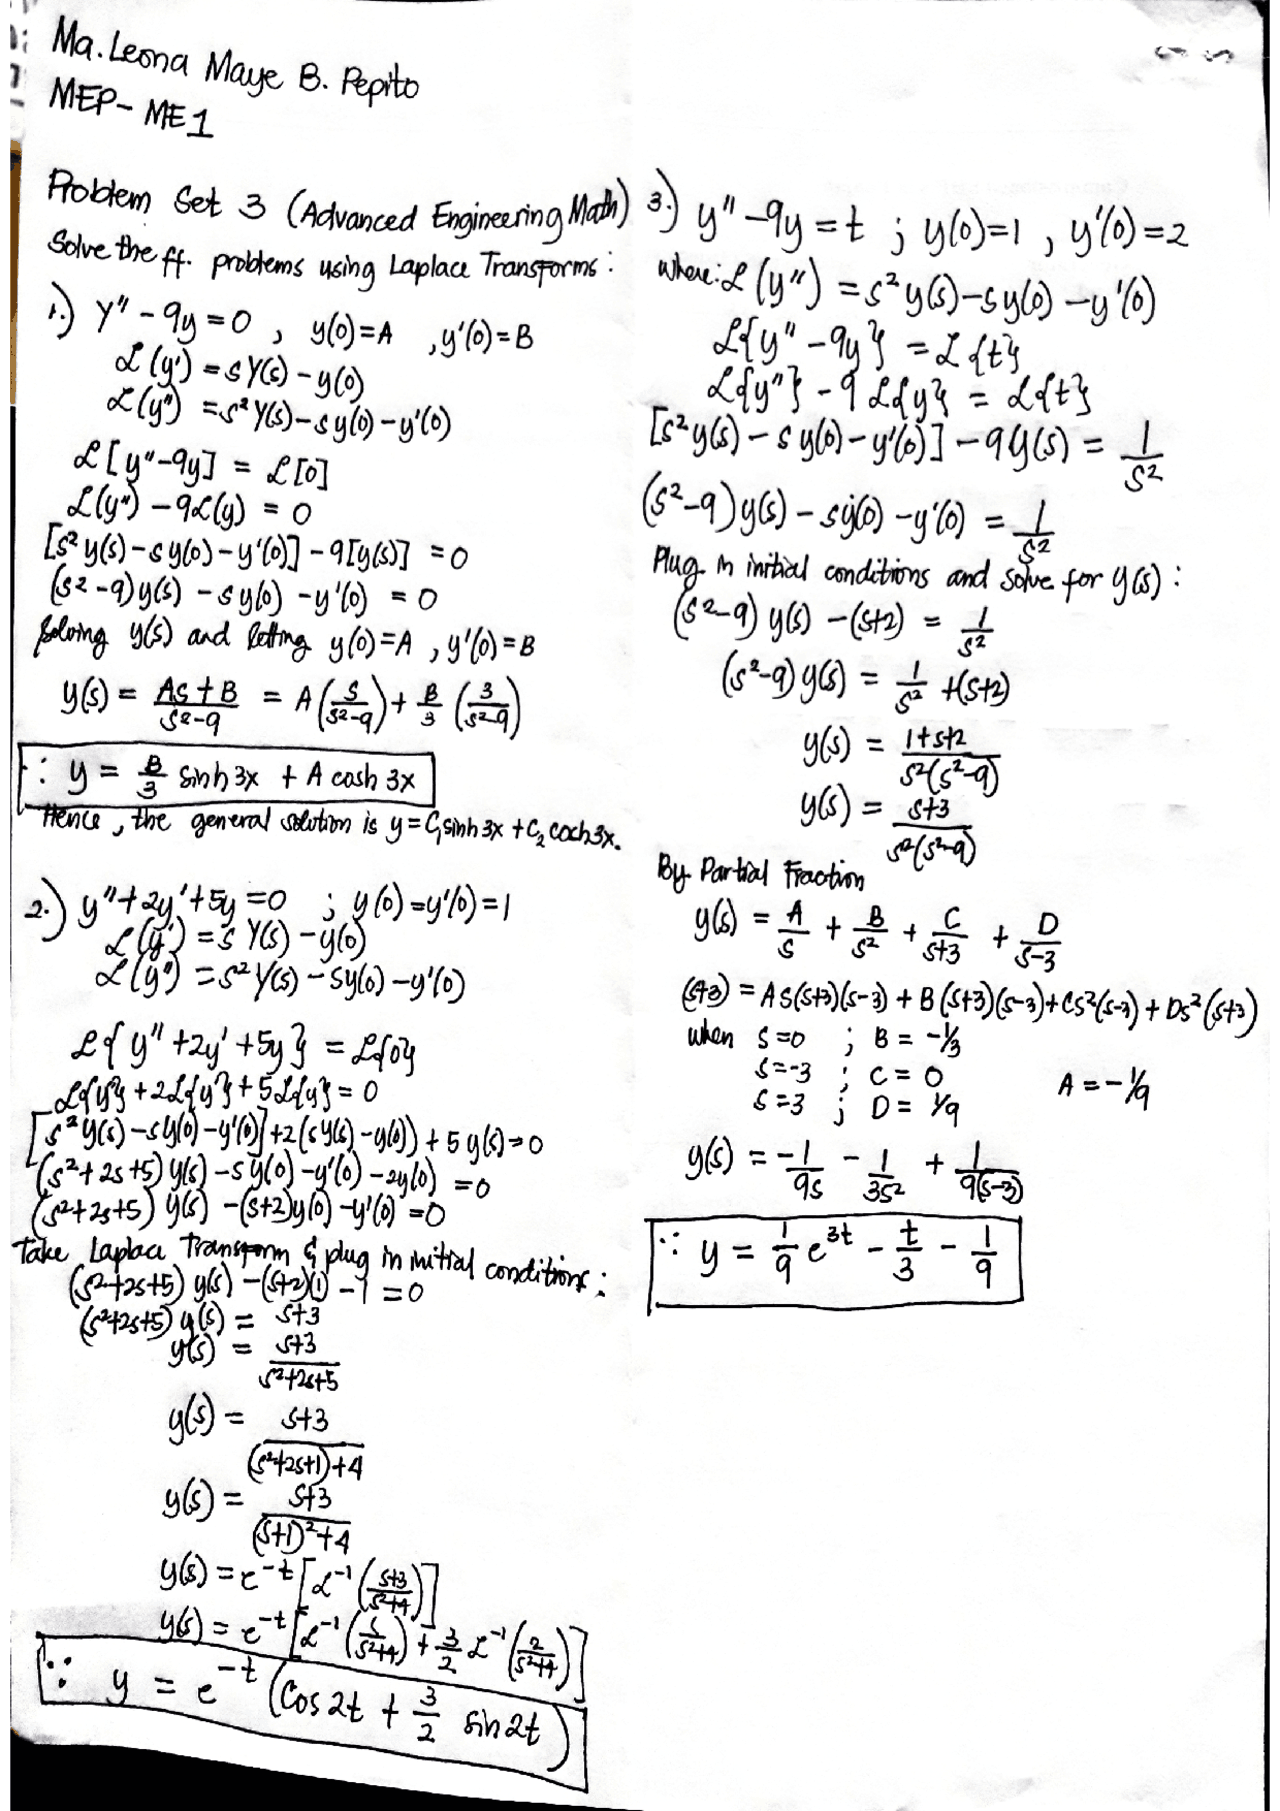 Ma. Leona Maye B. Pepito
MEP- ME1
Problem Set 3 (Advanced Engineering Math)
Solve the ff. problems using Laplace Transforms:
1.) Y'' - 9y = 0 , y(0)=A , y'(0)=B
ℒ(y') = sY(s) - y(0)
ℒ(y'') = s²Y(s) - sy(0) - y'(0)
ℒ[y''-9y] = ℒ[0]
ℒ(y'') - 9ℒ(y) = 0
[s²y(s) - sy(0) - y'(0)] - 9[y(s)] = 0
(s²-9)y(s) - sy(0) - y'(0) = 0
Solving y(s) and letting y(0)=A , y'(0)=B
y(s) = As+B/s²-9 = A(s/s²-9) + B/3 (3/s²-9)
∴ y = B/3 sinh 3x + A cosh 3x
Hence, the general solution is y = C₁sinh 3x + C₂ coch3x.
2.) y''+2y'+5y = 0 ; y(0)=y'(0)=1
ℒ(y') = sY(s) - y(0)
ℒ(y'') = s²Y(s) - sy(0) - y'(0)
ℒ{y''+2y'+5y} = ℒ{0}
ℒ{y''} + 2ℒ{y'} + 5ℒ{y} = 0
[s²y(s) - sy(0) - y'(0)] + 2(sy(s) - y(0)) + 5y(s) = 0
(s²+2s+5)y(s) - sy(0) - y'(0) - 2y(0) = 0
(s²+2s+5)y(s) - (s+2)y(0) - y'(0) = 0
Take Laplace Transform & plug in initial conditions:
(s²+2s+5)y(s) - (s+2)(1) - 1 = 0
(s²+2s+5)y(s) = s+3
y(s) = s+3/s²+2s+5
y(s) = s+3/(s²+2s+1)+4
y(s) = s+3/(s+1)²+4
y(s) = e^-t [ℒ^-1 (s+3/s²+4)]
y(s) = e^-t [ℒ^-1 (s/s²+4) + 3/2 ℒ^-1 (2/s²+4)]
∴ y = e^-t (Cos 2t + 3/2 sin 2t)
3.) y'' - 9y = t ; y(0)=1 , y'(0)=2
where: ℒ(y'') = s²y(s) - sy(0) - y'(0)
ℒ{y'' - 9y} = ℒ{t}
ℒ{y''} - 9ℒ{y} = ℒ{t}
[s²y(s) - sy(0) - y'(0)] - 9y(s) = 1/s²
(s²-9)y(s) - sy(0) - y'(0) = 1/s²
Plug in initial conditions and solve for y(s):
(s²-9)y(s) - (s+2) = 1/s²
(s²-9)y(s) = 1/s² + (s+2)
y(s) = 1+s+2/s²(s²-9)
y(s) = s+3/s²(s²-9)
By Partial Fraction
y(s) = A/s + B/s² + C/s+3 + D/s-3
(s+3) = As(s+3)(s-3) + B(s+3)(s-3) + Cs²(s-3) + Ds²(s+3)
when s=0 ; B = -1/3
s=-3 ; C = 0 A = -1/9
s=3 ; D = 1/9
y(s) = -1/9s - 1/3s² + 1/9(s-3)
∴ y = 1/9 e^3t - t/3 - 1/9